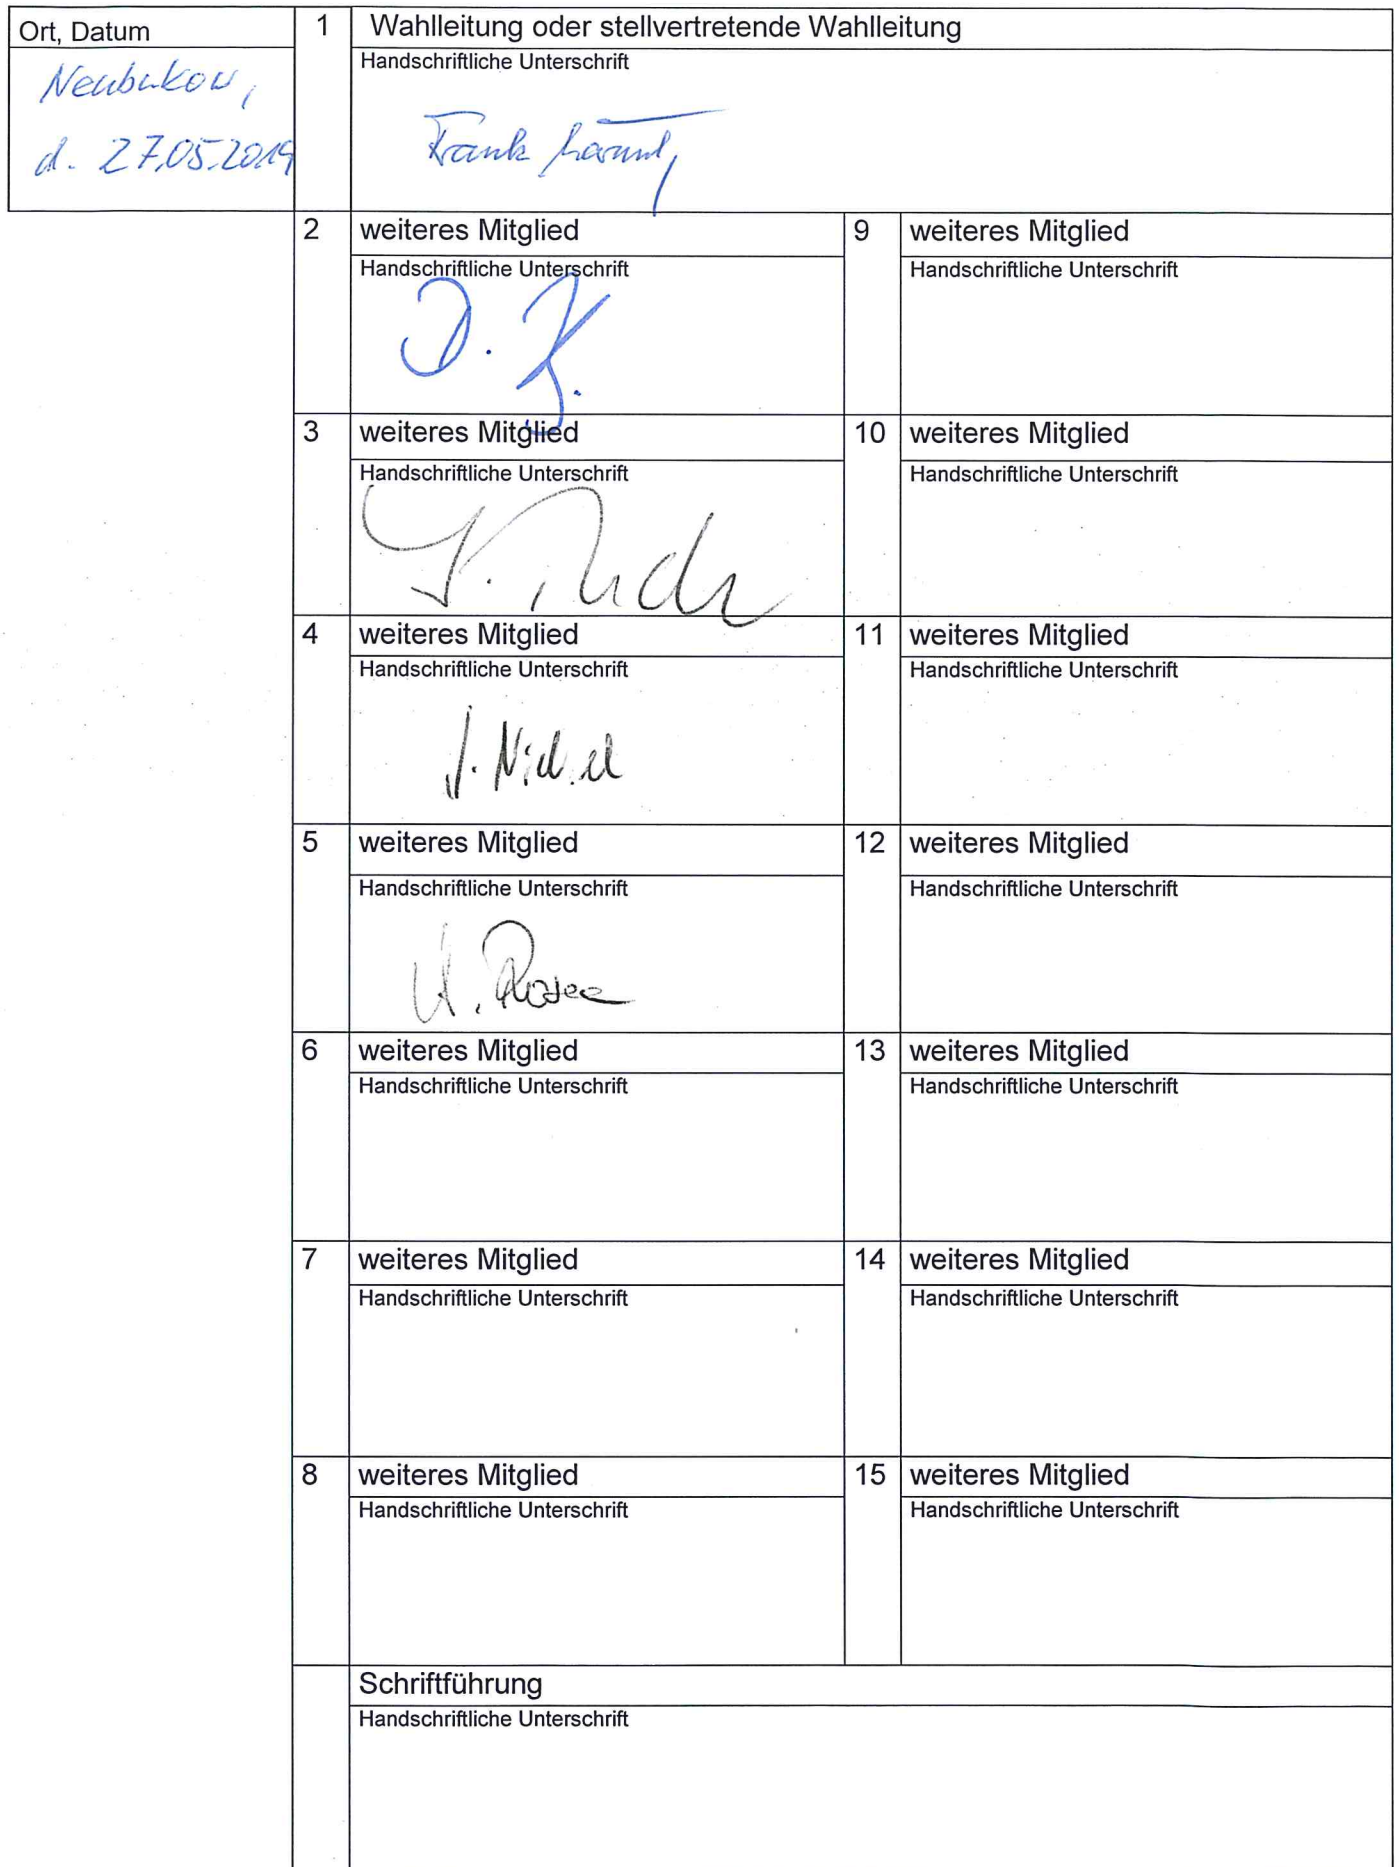 Ort, Datum
Neubukow,
d. 27.05.2019
1 Wahlleitung oder stellvertretende Wahlleitung
Handschriftliche Unterschrift
Frank
2 weiteres Mitglied
Handschriftliche Unterschrift
9 weiteres Mitglied
Handschriftliche Unterschrift
3 weiteres Mitglied
Handschriftliche Unterschrift
10 weiteres Mitglied
Handschriftliche Unterschrift
4 weiteres Mitglied
Handschriftliche Unterschrift
11 weiteres Mitglied
Handschriftliche Unterschrift
5 weiteres Mitglied
Handschriftliche Unterschrift
12 weiteres Mitglied
Handschriftliche Unterschrift
6 weiteres Mitglied
Handschriftliche Unterschrift
13 weiteres Mitglied
Handschriftliche Unterschrift
7 weiteres Mitglied
Handschriftliche Unterschrift
14 weiteres Mitglied
Handschriftliche Unterschrift
8 weiteres Mitglied
Handschriftliche Unterschrift
15 weiteres Mitglied
Handschriftliche Unterschrift
Schriftführung
Handschriftliche Unterschrift